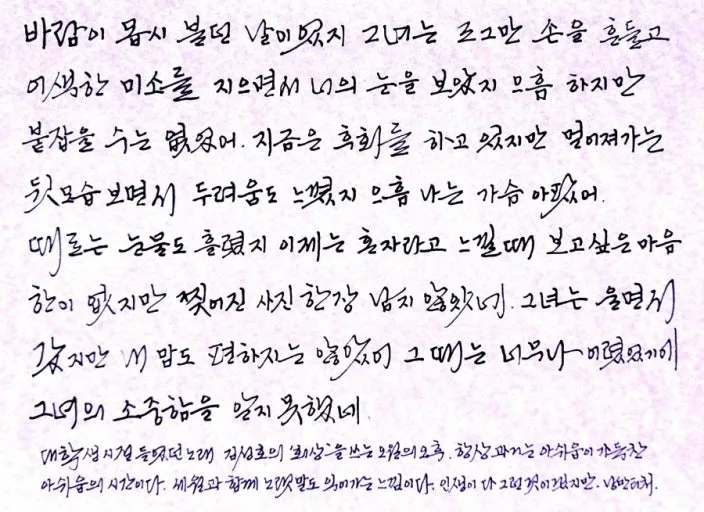 바람이 몹시 불던 날이었지 그녀는 조그만 손을 흔들고
어색한 미소를 지으면서 너의 눈을 보았지 으흠 하지만
붙잡을 수는 없었어. 지금은 후회를 하고 있지만 멀어져가는
뒷모습 보면서 두려움도 느꼈지 으흠 나는 가슴 아팠어.
때로는 눈물도 흘렸지 이제는 혼자라고 느낄때 보고싶은 마음
한이 없지만 찢어진 사진 한장 남지 않았네. 그녀는 울면서
갔지만 내 맘도 편하지는 않았어 그 때는 너무나 어렸었기에
그녀의 소중함을 알지 못했네.
대학생 시절 들었던 노래 김성호의 '회상'을 쓰는 오월의 오후. 항상 과거는 아쉬움이 가득찬
아쉬움의 시간이다. 세월과 함께 노랫말도 익어가는 느낌이다. 인생이 다 그런것이겠지만.